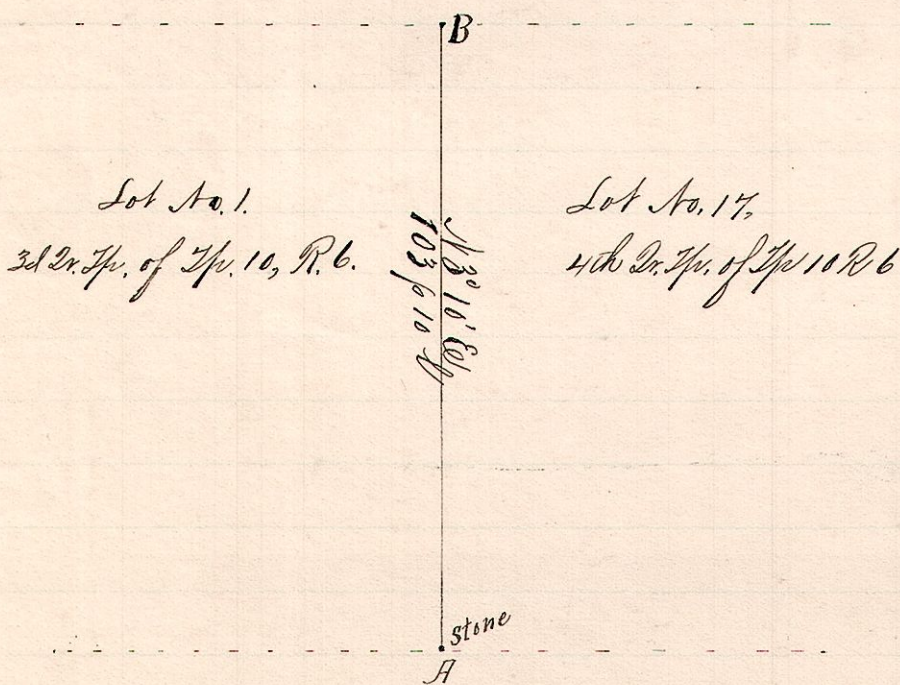 B
Lot No. 1.
3d Qr. Tp. of Tp. 10, R. 6.
N 3° 10' E
103 p 10 l
Lot No. 17,
4th Qr. Tp. of Tp 10 R 6
stone
A